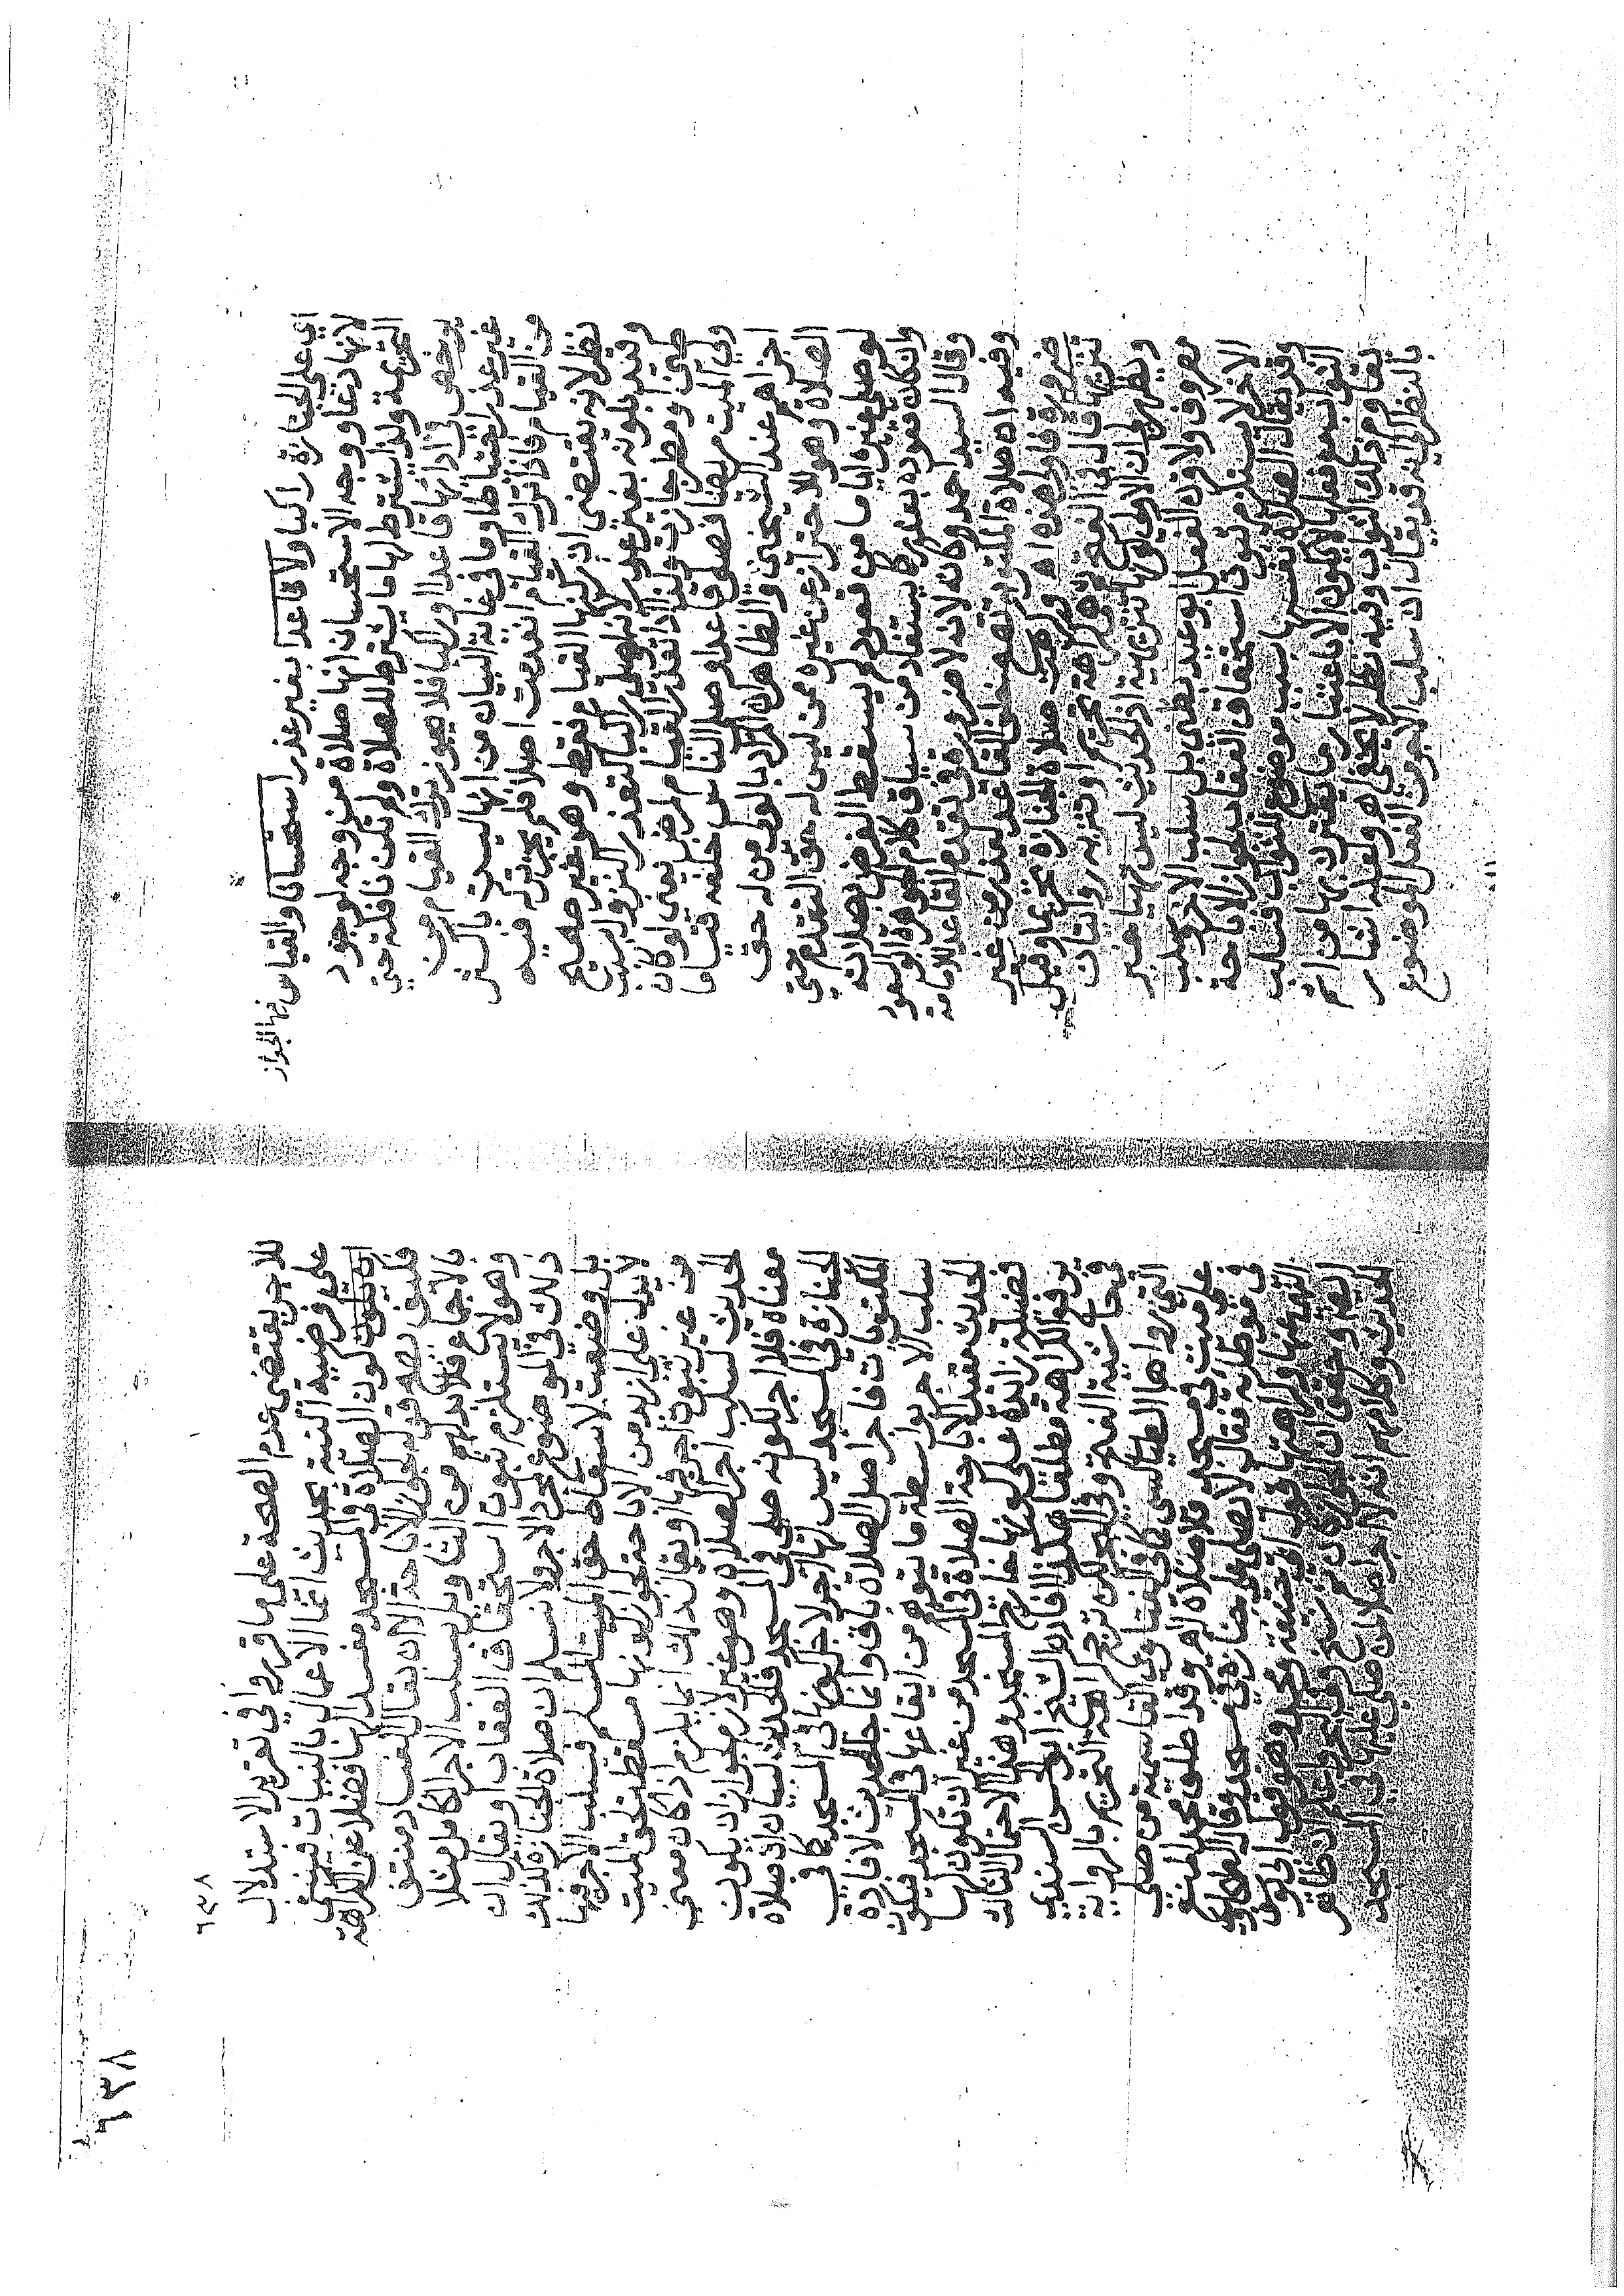 اي على الجنازة راكبا ولا قاعدا بغير عذر استحسانا والقياس فيها الجواز
لانها دعا ووجه الاستحسان انها صلاة من وجه لوجود
التحريمة ولذا يشترط لها ما يشترط للصلاة ولم تكن نافلة حتى
يرخص في ادائها قاعدا او راكبا فلا يجوز ترك القيام من
غير عذر احتياطا وما في غاية البيان من انها ليست باكثر
من القيام فاذا ترك القيام انعدمت اصلا فلم يجز تركه فيه
نظر لانه يقتضي ان ركنها القيام فقط وهو غير صحيح
وقيد بكونه بغير عذر لانه لو صلى راكبا لتعذر النزول بسبب
طين او مطر جازت وكذا اذا تعذر القيام لمرض يعني لو كان
ولي الميت مريضا فصلى قاعدا وصلى الناس خلفه قياما
اجزاهم عند الشيخين والظاهر ان المراد بالولي من له حق
الصلاة وهو للاحتراز عن غيره ممن ليس له حق التقدم حتى
لو صلى غيره اماما من قعود لم يسقط الفرض بصلاته
وان كان قعوده بعذر كما يستفاد من سياق كلام الجوهرة ابو السعود
وقال السيد احمد وكانه لانه لا ضرورة في تقدم القاعد للامامة
وفيه ان صلاة المقتدي تصح خلف القاعد لعذر من غير
ضرورة فاولى هذه اهـ وكرهت صلاة الجنازة تحريما وقيل
تنزيها قال في الفتح ثم هي كراهة تحريم او تنزيه روايتان
ويظهر لي ان الاولى كونها تنزيهية اذ الحديث ليس نهيا غير
مصروف ولا قرن الفعل بوعيد بظني بل سلب الاجر وسلب
الاجر لا يستلزم ثبوت استحقاق العقاب لجواز الاباحة
وقد يقال ان الصلاة نفسها سبب موضوع للثواب فسلب
الثواب مع فعلها لا يكون الا باعتبار ما يقترن بها من اثم
يقاوم ذلك الثواب وفيه نظر لا يخفى هو ولعله اشار
بالنظر الى انه قد يقال ان سلب الاجر عن الفعل الموضوع
٦٣٨
للاجر يقتضي عدم الصحة على ما قرروا في تقرير الاستدلال
على فرضية النية بحديث انما الاعمال بالنيات فينبغي
ان يكون كون الصلاة في المسجد مفسدا لها فضلا عن الكراهة
فكيف يصح قوله بجواز الاباحة الا ان يقال الفساد منتف
بالاجماع فلا بد لهم من التاويل بسلب الاجر الكامل مثلا
وهو لا يستلزم ثبوت استحقاق العقاب او يقال ان
ذلك في الموضوع لمجرد الاجر ولا نسلم ان صلاة الجنازة كذلك
بل وضعت لاسقاط حق الميت المسلم فسلب الاجر فيها
لا يدل على ازيد من الاباحة لجواز كونها مسقطة لحق الميت
من غير ثبوت اجر فيها او يقال ذلك انما يلزم اذ كان معنى
الحديث سلب اجر الصلاة وهو غير لازم لجواز ان يكون
معناه فلا اجر لكونه صلى في المسجد فالحديث لبيان ان صلاة
الجنازة في المسجد ليس لها اجر لاجل كونها في المسجد كما في
المكتوبات فاجر اصل الصلاة باق وانما جاء الحديث لافادة
سلب الاجر بواسطة ما يتوهم من ايقاعها في المسجد فيكون
الحديث مفيدا لاباحة الصلاة في المسجد من غير ان تكون لها
فضيلة زائدة على كونها خارج المسجد وهذا الاحتمال الثالث
يرفع الكراهة مطلقا هكذا افاد الشيخ ابو الحسن السندي
في حاشية الفتح وفي البحر لكن ترجح كراهة التحريم بالرواية
التي رواها الطيالسي كما في الفتاوى القاسمية من صلى
على ميت في مسجد فلا صلاة له وقد اطلق محمد المنع
في موطائه فقال لا يصلى على جنازة في مسجد وقال الطحاوي
النهي عنها وكراهتها قول ابي حنيفة ومحمد وهو قول ابي يوسف
ايضا وحقق ان الجواز كان ثم نسخ وفي البحر واعلم ان ظاهر
الحديث وكلامهم انه لا اجر اصلا لمن صلى عليها في المسجد
٦٣٨